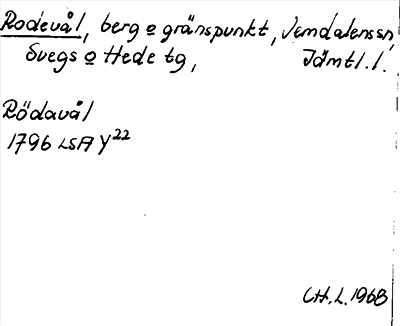 Rodevål, berg o gränspunkt, Vemdalens sn,
Svegs o Hede tg, Jämtl. l.
Rödavål
1796 LSA Y22
CH. L. 1968